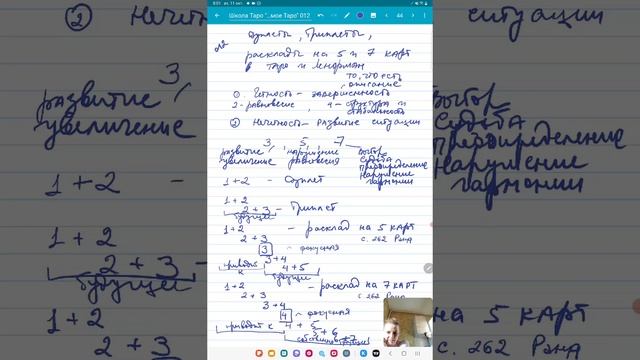 9:51 вт, 11 окт.
Школа Таро "...мое Таро" 012
44
Дуплеты, Триплеты,
расклады на 5 и 7 карт
в таро и Ленорман
то, что есть
описание
① Четность – завершенность
2 - равновесие, 4 – структура и
стабильность
② Нечетность – развитие ситуации
3 5 7
развитие, нарушение выбор
увеличение равновесия судьба
предопределение
нарушение
гармонии
1 + 2 – Дуплет
1 + 2
2 + 3 – Триплет
будущее
1 + 2 – расклад на 5 карт
2 + 3 с. 262 Рэнд
3 – фокусная
3 + 4
приводит к 4 + 5
будущее
1 + 2 – расклад на 7 карт
2 + 3 с 262 Рэнд
3 + 4
4 – фокусная
приводит к 4 + 5
5 + 6
② Нечетность
ситуации
3
развитие,
увеличение
1 + 2 –
1 + 2
2 + 3 –
будущее
1 + 2
2 + 3
выбор
судьба
предопределение
нарушение
гармонии
на 5 карт
с. 262 Рэнд